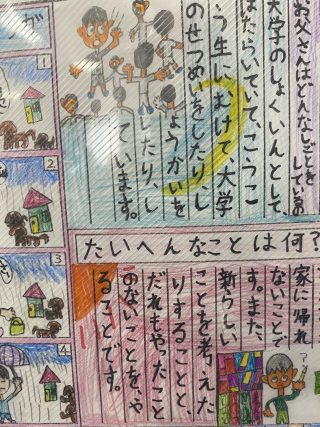 お父さんはどんなしごとを
しているの
大学のしょくいんとして、
はたらいていて、こうこ
う生にむけて、大学
のせつめいをしたり、し
ょうかいを
したり、し
ています。
たいへんなことは何?
家に帰れ
ないことで
す。また、
新らしい
ことを考えた
りすることと、
だれもやったこと
のないことを、や
ることです。
が
1
2
3
4